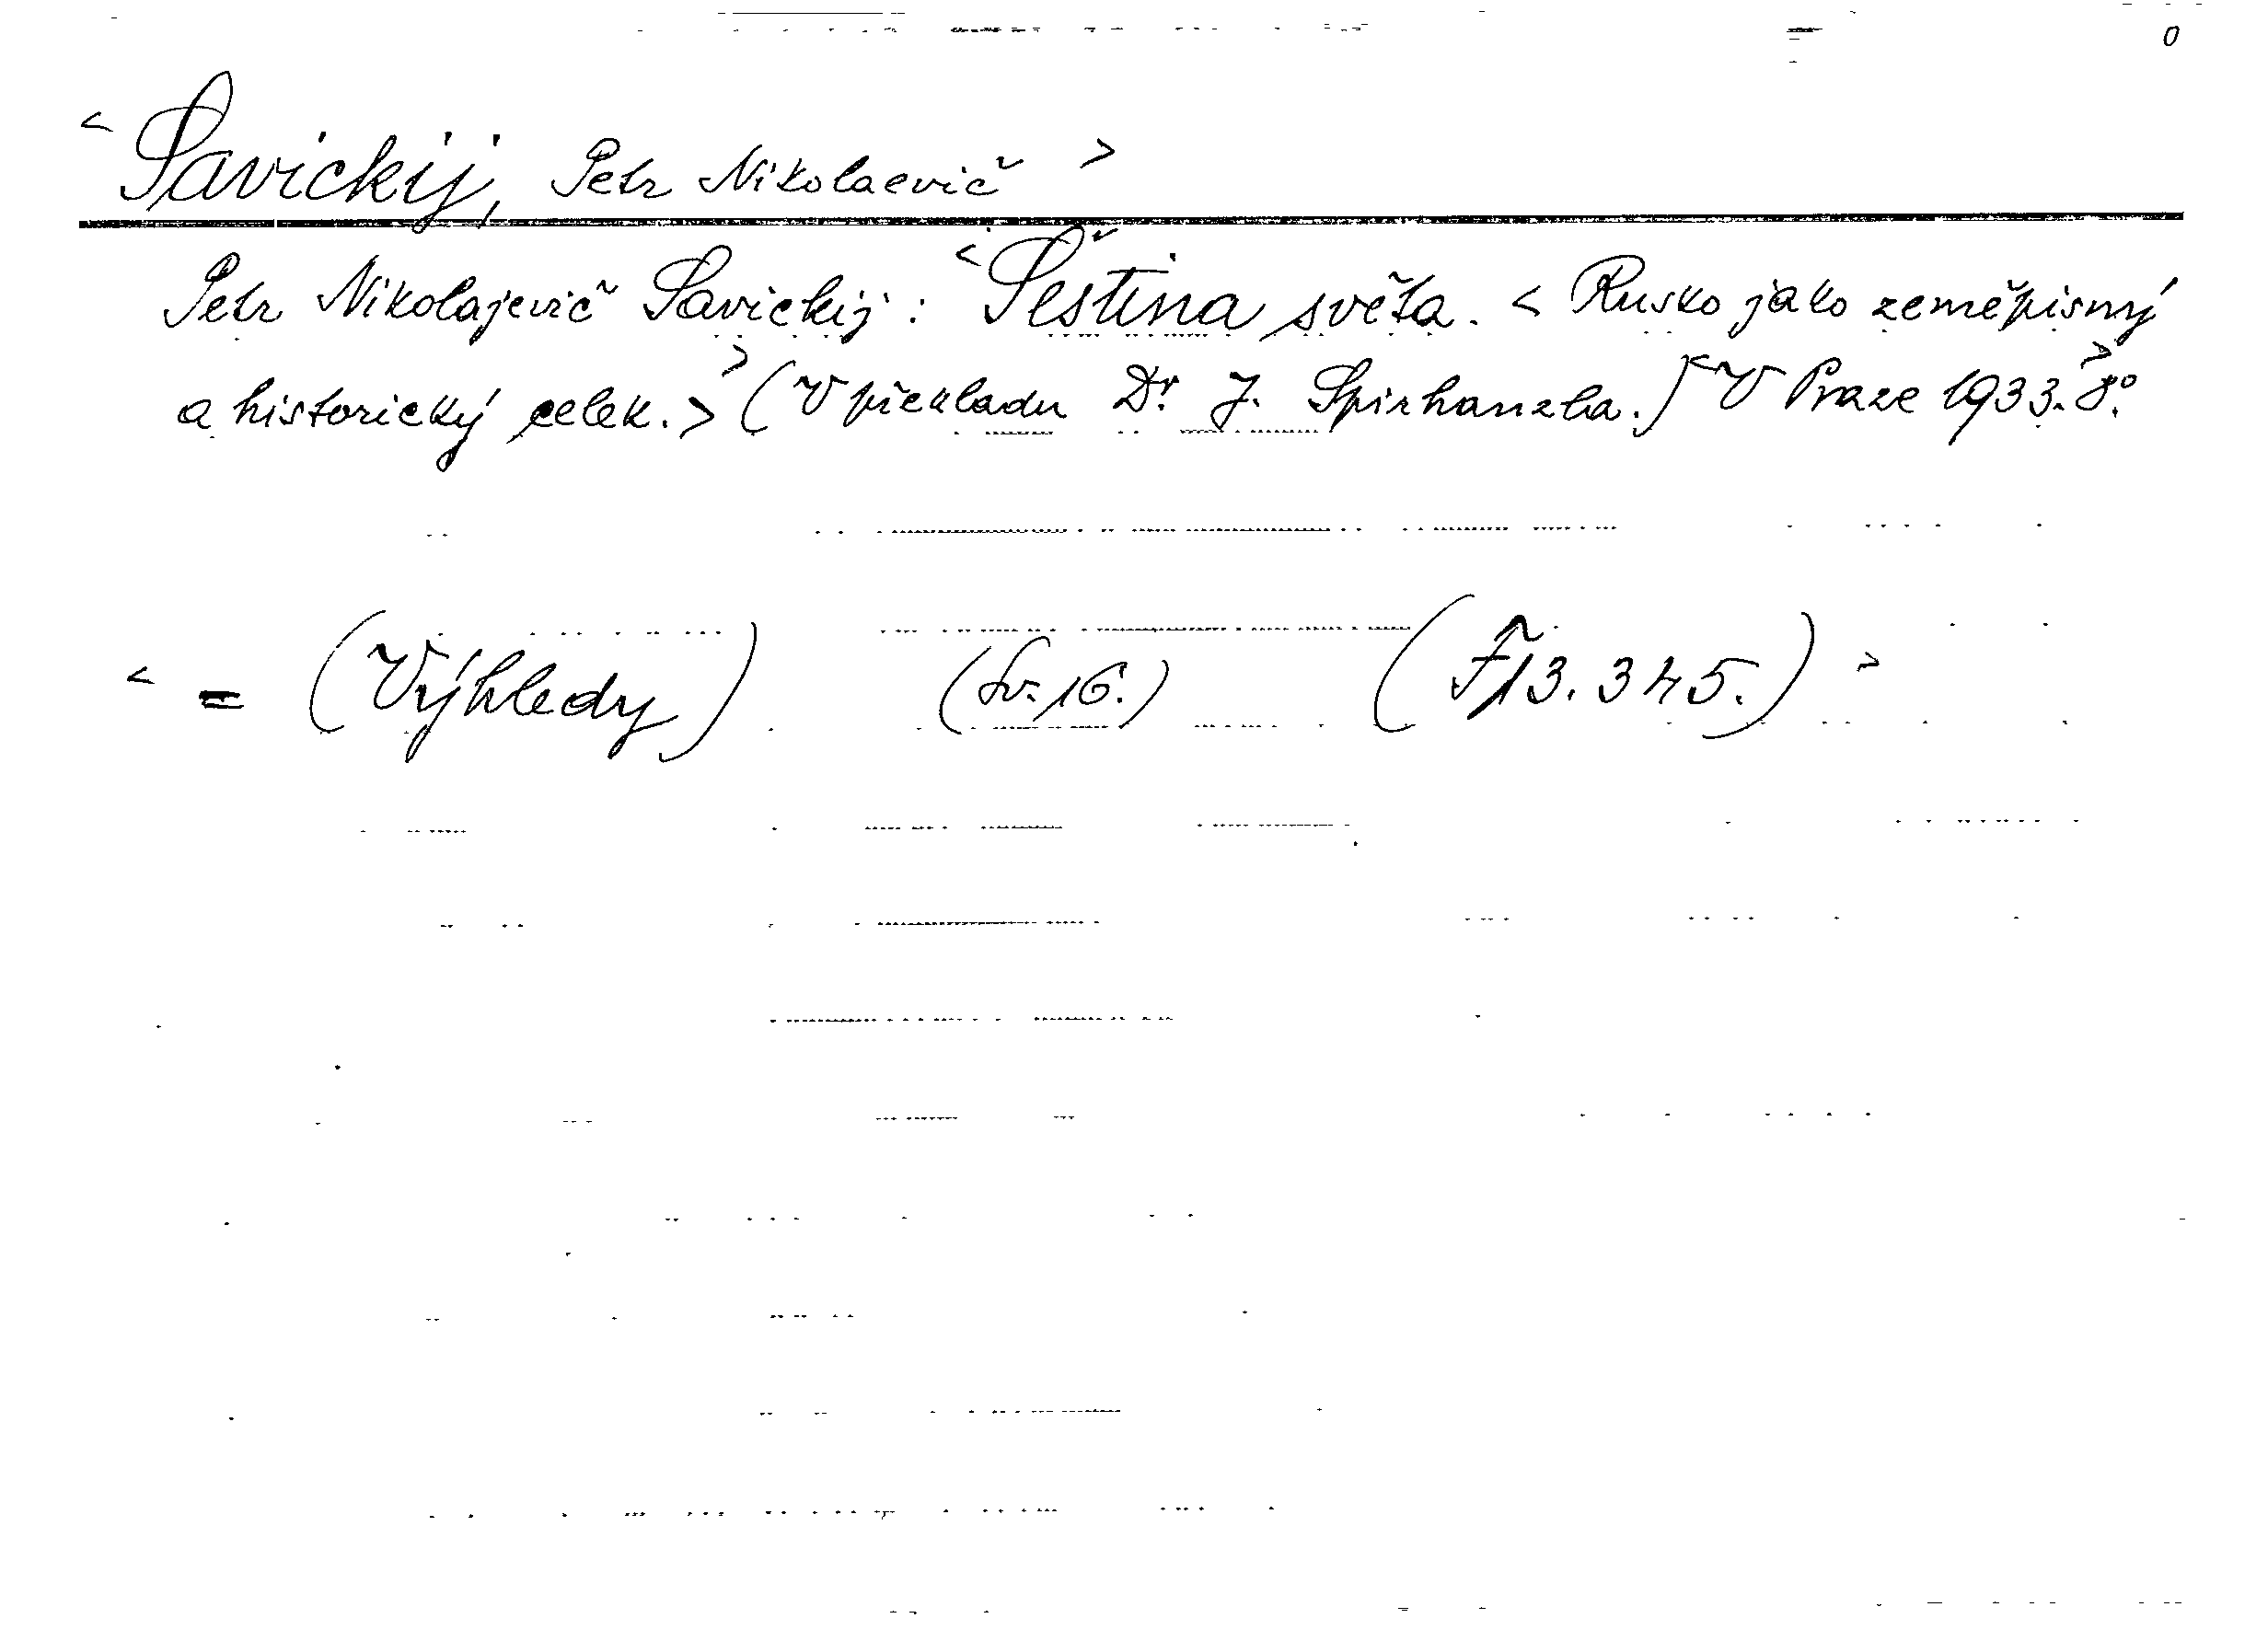 0
< Savickij, Petr Nikolaevič >
Petr Nikolajevič Savickij: < Šestina světa. < Rusko jako zeměpisný
a historický celek. > > (V překladu Dr. J. Spirhanzla.) < V Praze 1933. 8°. >
< = (Výhledy) (Sv. 16.) (F 13.345.) >